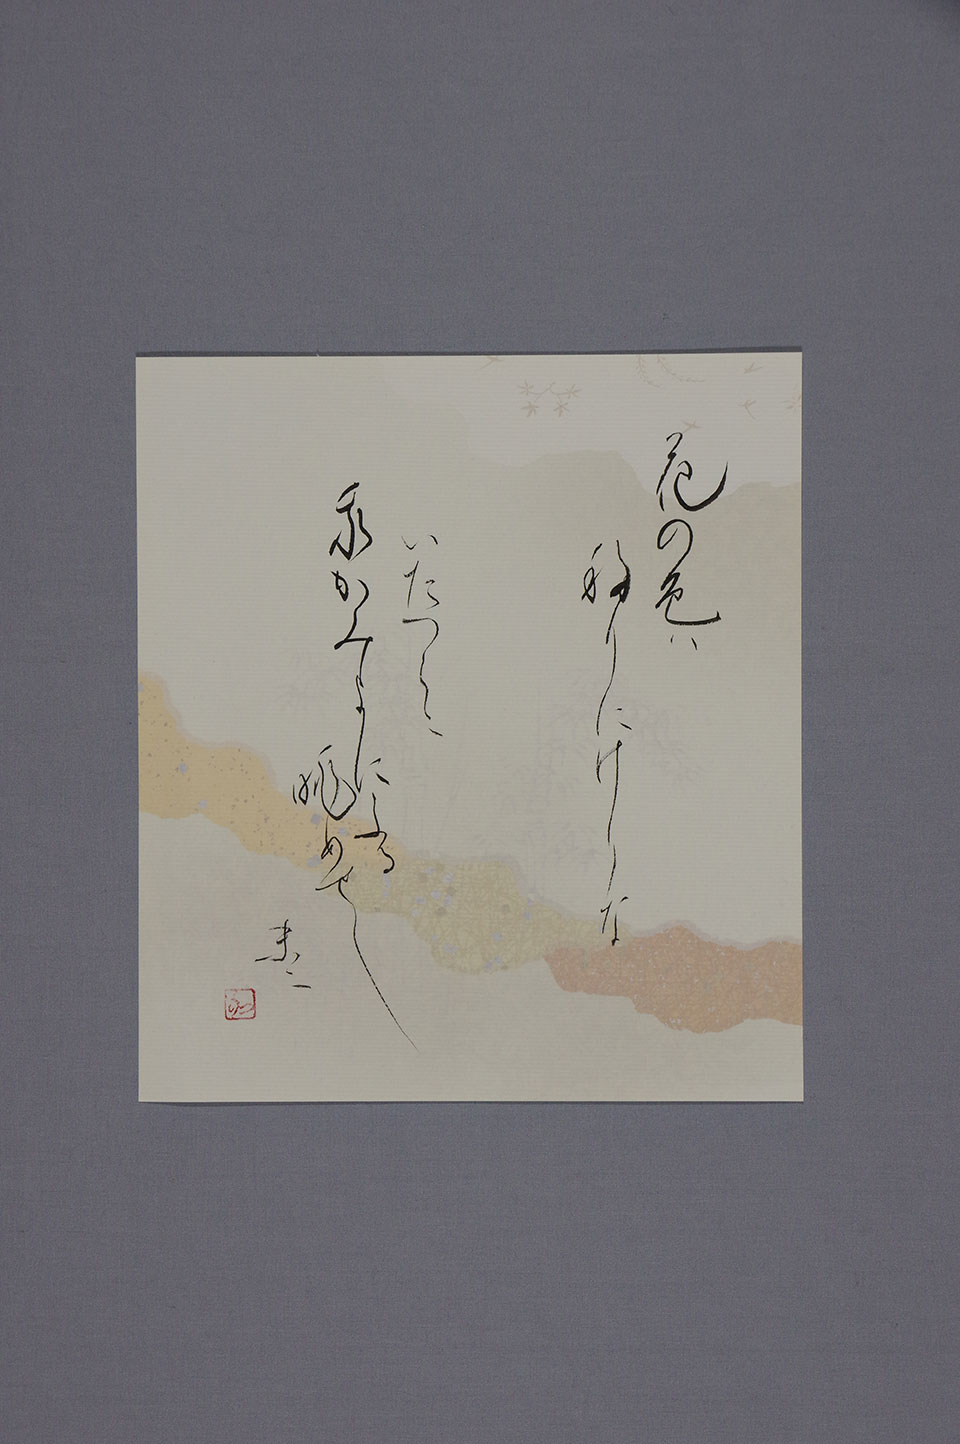 花の色は
移りにけりな
いたつらに
我かみよにふる
眺めせし